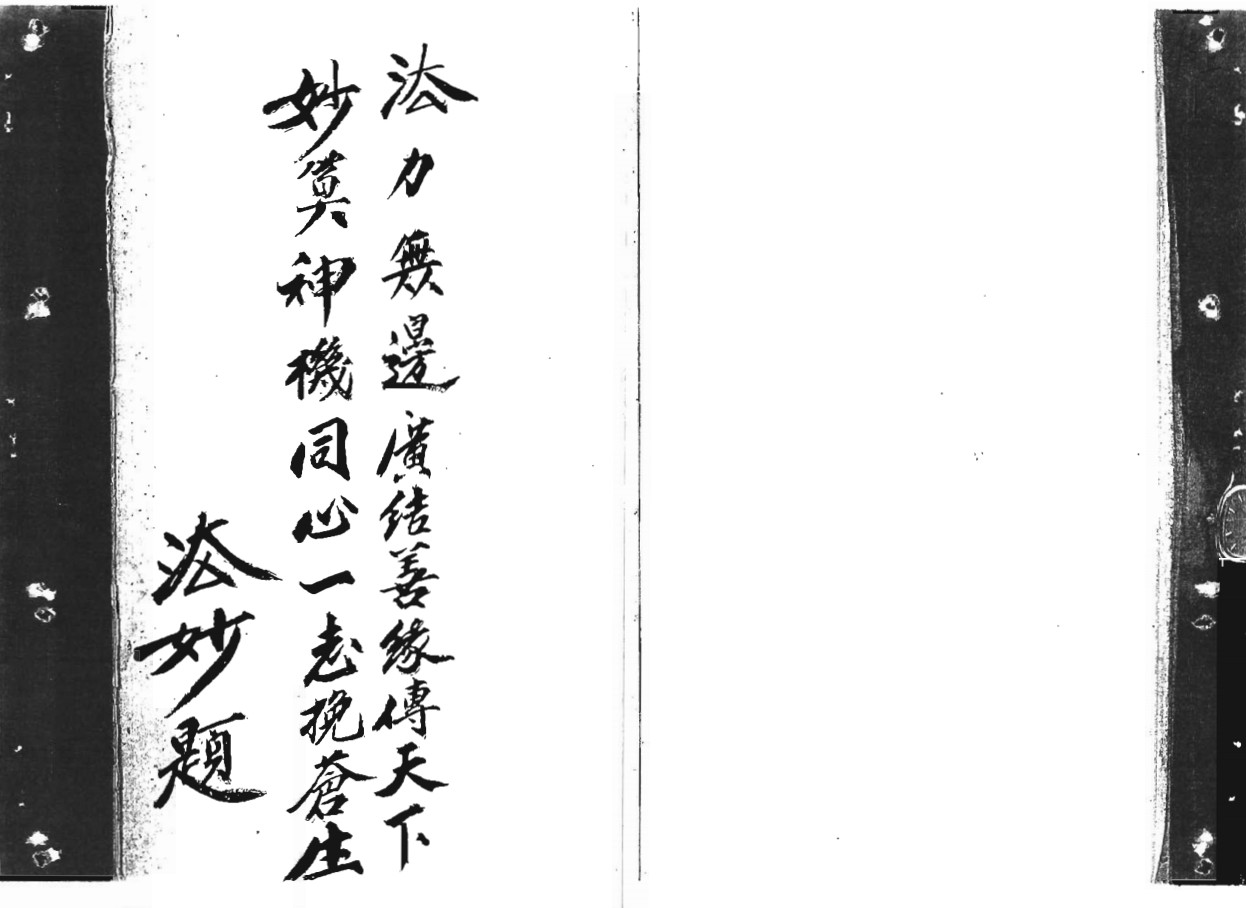 法力無邊廣结善緣傳天下
妙算神機同心一志挽蒼生
法妙題